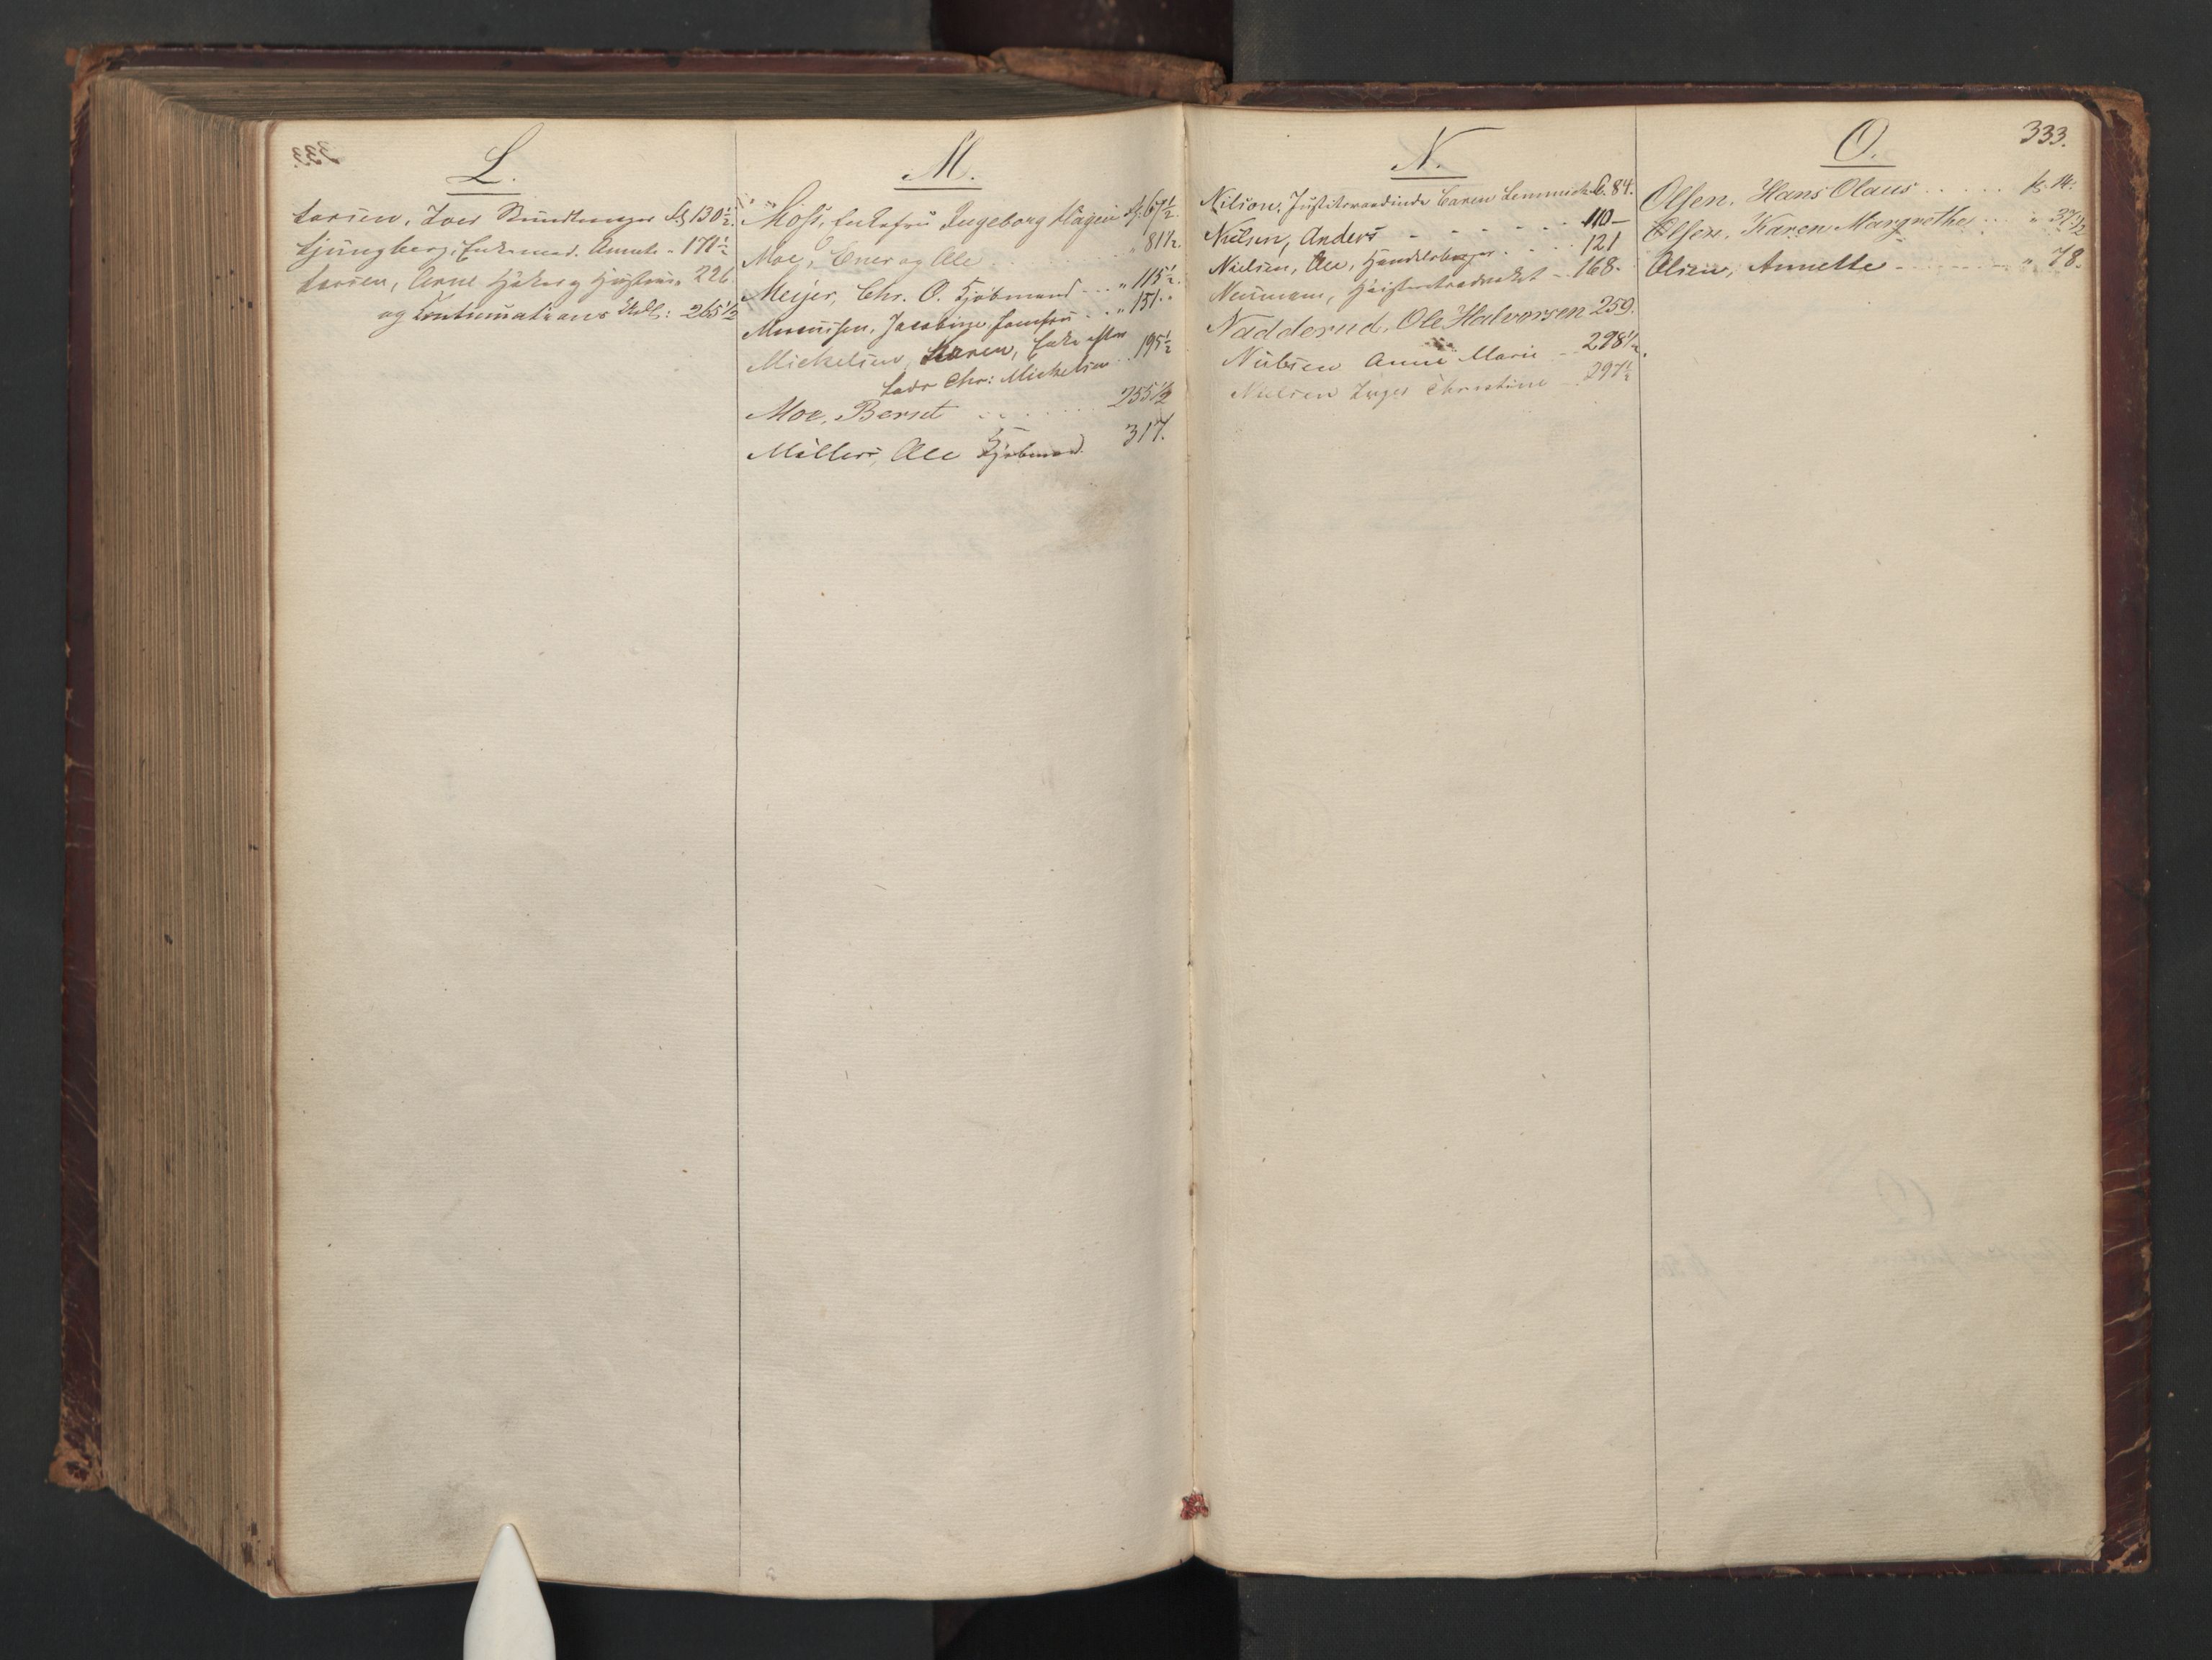 L.
Larsen, Iver fol 130½.
Ljungberg, Enkemad. Annete „ 171½
Larsen, Arne Høker og Hustru „ 226
og Continuations Udl: 265½
M.
Moss, Enkefru Ingeborg Hagen f. 67½.
Moe, Ener og Ole „ 81½.
Meijer, Chr. O. Kjøbmand „ 115½.
Jacobine, Jomfru „ 151.
Mickelsen, Karen, Enke efter
Chr: Mickelsen 195½
Moe, Bernt 255½
Möllers, Ole Kjøbmand. 317.
N.
Nilson, Justitsraadinde Caren Lemmich f. 84.
Nielsen, Anders 110–
Nielsen, Ole, Handelsborger. 121
Neumann, Høiesteretsadvokat 168.
Nadderud, Ole Halvorsen 259.
Nielsen Anne Marie 298½.
Nielsen Inger Christine 297½
O.
333.
Olsen, Hans Olaus f. 14.
Olsen, Karen Margrethe „ 37½
Olsen, Annette „ 78.